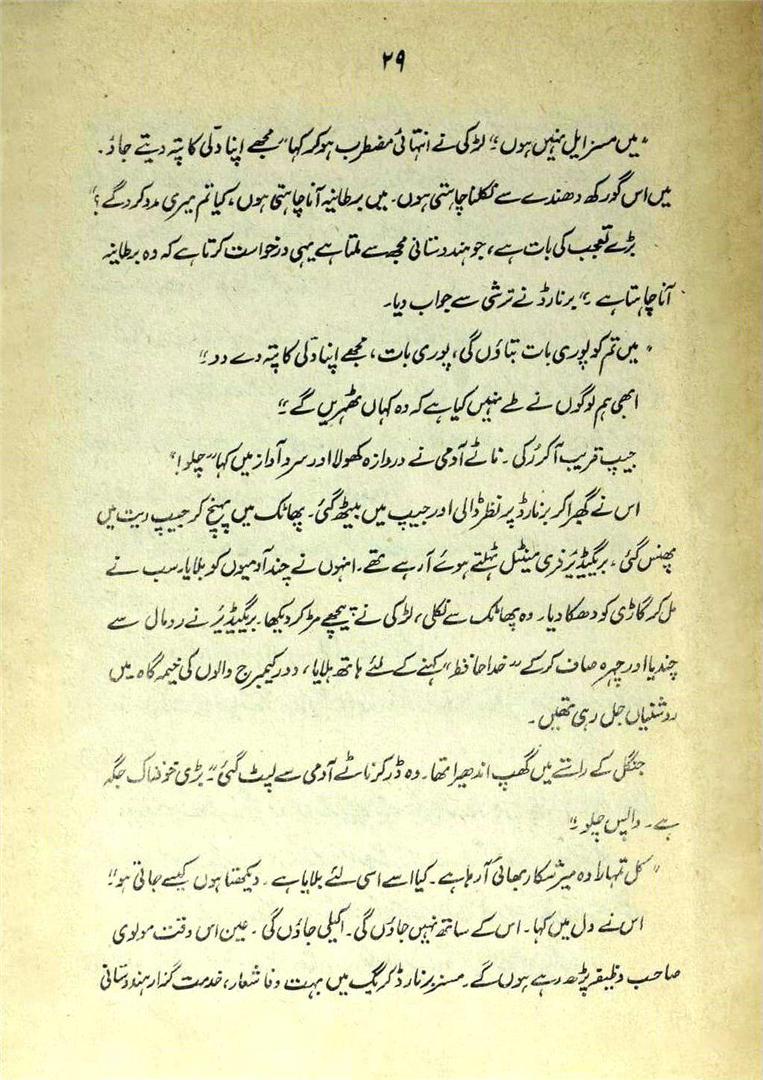 ۲۹
"میں مسز ایل نہیں ہوں۔" لڑکی نے انتہائی مضطرب ہو کر کہا "مجھے اپنا دلّی کا پتہ دیتے جاؤ۔
میں اس گورکھ دھندے سے نکلنا چاہتی ہوں۔ میں برطانیہ آنا چاہتی ہوں، کیا تم میری مدد کرو گے؟"
بڑے تعجب کی بات ہے، جو ہندوستانی مجھ سے ملتا ہے یہی درخواست کرتا ہے کہ وہ برطانیہ
آنا چاہتا ہے۔" برنارڈ نے ترشی سے جواب دیا۔
"میں تم کو پوری بات بتاؤں گی، پوری بات، مجھے اپنا دلّی کا پتہ دے دو۔"
ابھی ہم لوگوں نے طے نہیں کیا ہے کہ وہ کہاں ٹھہریں گے۔"
جیپ قریب آ کر رُکی۔ ناٹے آدمی نے دروازہ کھولا اور سرد آواز میں کہا "چلو!"
اس نے گھبرا کر برنارڈ پر نظر ڈالی اور جیپ میں بیٹھ گئی۔ پھاٹک میں پہنچ کر جیپ ریت میں
پھنس گئی۔ بریگیڈیئر فری مینٹل ٹہلتے ہوئے آ رہے تھے۔ انہوں نے چند آدمیوں کو بلایا۔ سب نے
مل کر گاڑی کو دھکا دیا۔ وہ پھاٹک سے نکلی، لڑکی نے پیچھے مڑ کر دیکھا۔ بریگیڈیئر نے رومال سے
چندیا اور چہرہ صاف کر کے "خدا حافظ" کہنے کے لئے ہاتھ ہلایا، دور کیمبرج والوں کی خیمہ گاہ میں
روشنیاں جل رہی تھیں۔
جنگل کے راستے میں گھپ اندھیرا تھا۔ وہ ڈر کر ناٹے آدمی سے لپٹ گئی "بڑی خوفناک جگہ
ہے۔ واپس چلو۔"
"کل تمہارا وہ میر شکار بھائی آ رہا ہے۔ کیا اسے اسی لئے بلایا ہے۔ دیکھتا ہوں کیسے جاتی ہو۔"
اس نے دل میں کہا۔ اس کے ساتھ نہیں جاؤں گی۔ اکیلی جاؤں گی۔ عین اس وقت مولوی
صاحب وظیفہ پڑھ رہے ہوں گے۔ مسز برنارڈ کریگ میں بہت وفا شعار، خدمت گزار ہندوستانی